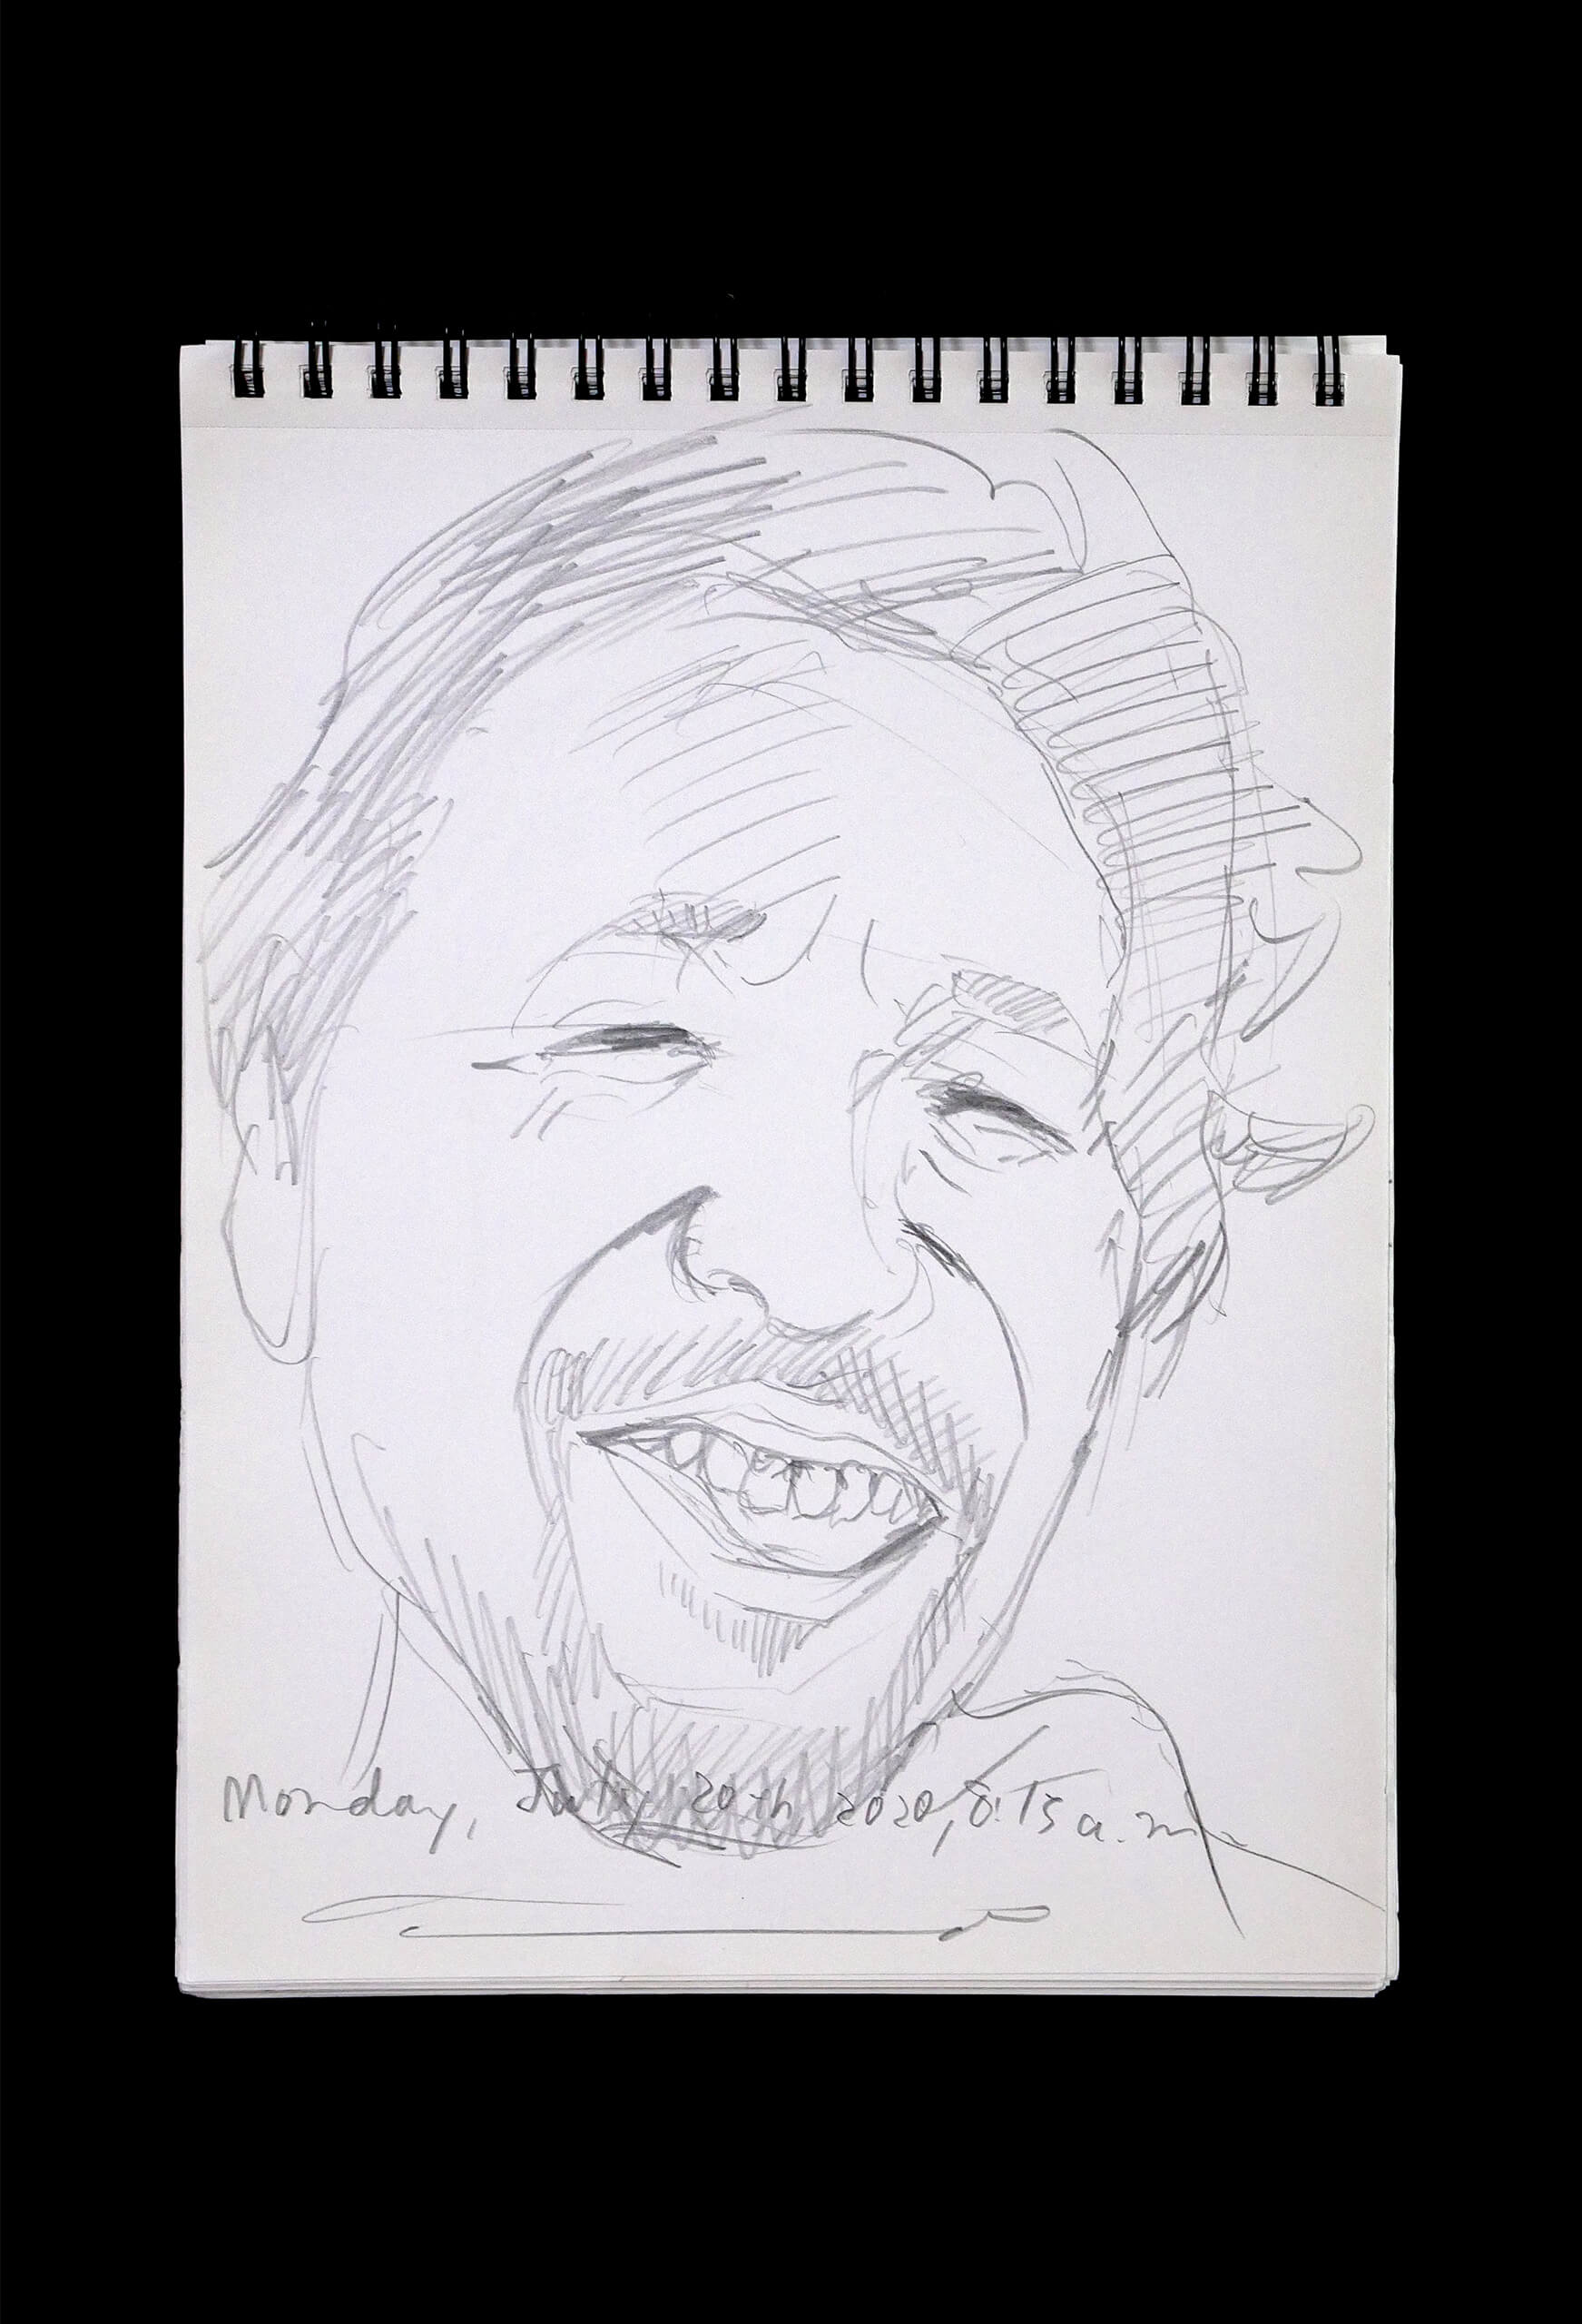 Monday, July 20th 2020, 8:15 a.m.